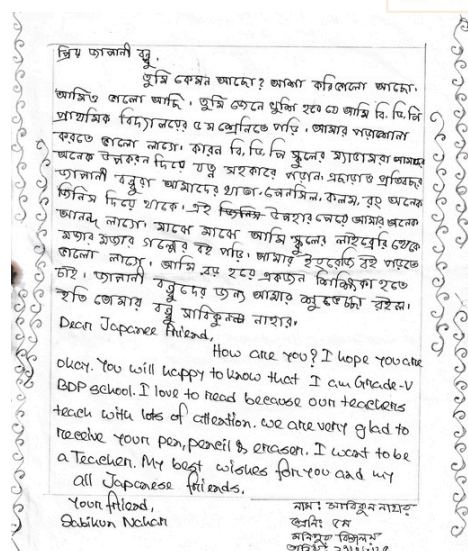 প্রিয় জাপানী বন্ধু,
তুমি কেমন আছো? আশা করি ভালো আছো।
আমিও ভালো আছি। তুমি জেনে খুশি হবে যে আমি বি. ডি. পি
প্রাথমিক বিদ্যালয়ের ৫ম শ্রেনিতে পড়ি। আমার পড়াশোনা
করতে ভালো লাগে। কারন বি, ডি, পি স্কুলের ম্যাডামরা আমাদের
অনেক উপকরন দিয়ে যত্ন সহকারে পড়ান। এছাড়াও প্রতিবছর
জাপানী বন্ধুরা আমাদের খাতা, পেনসিল, কলম, রং অনেক
জিনিস দিয়ে থাকে। এই উপহার পেয়ে আমার অনেক
আনন্দ লাগে। মাঝে মাঝে আমি স্কুলের লাইব্রেরি থেকে
মজার মজার গল্পের বই পড়ি। আমার ইংরেজি বই পড়তে
ভালো লাগে। আমি বড় হয়ে একজন শিক্ষিকা হতে
চাই। জাপানী বন্ধুদের জন্য আমার শুভেচ্ছা রইল।
ইতি তোমার বন্ধু সাবিকুন নাহার।
Dear Japanee friend,
How are you? I hope you are
okay. You will happy to know that I am Grade-V
BDP School. I love to read because our teachers
teach with lots of attention. we are very glad to
receive your pen, pencil & erason. I want to be
a Teacher. My best wishes for you and my
all Japanese friends.
Your friend,
Sabikun Nahar
নাম: সাবিকুন নাহার
শ্রেনি: ৫ম
মনিপুর বিদ্যালয়